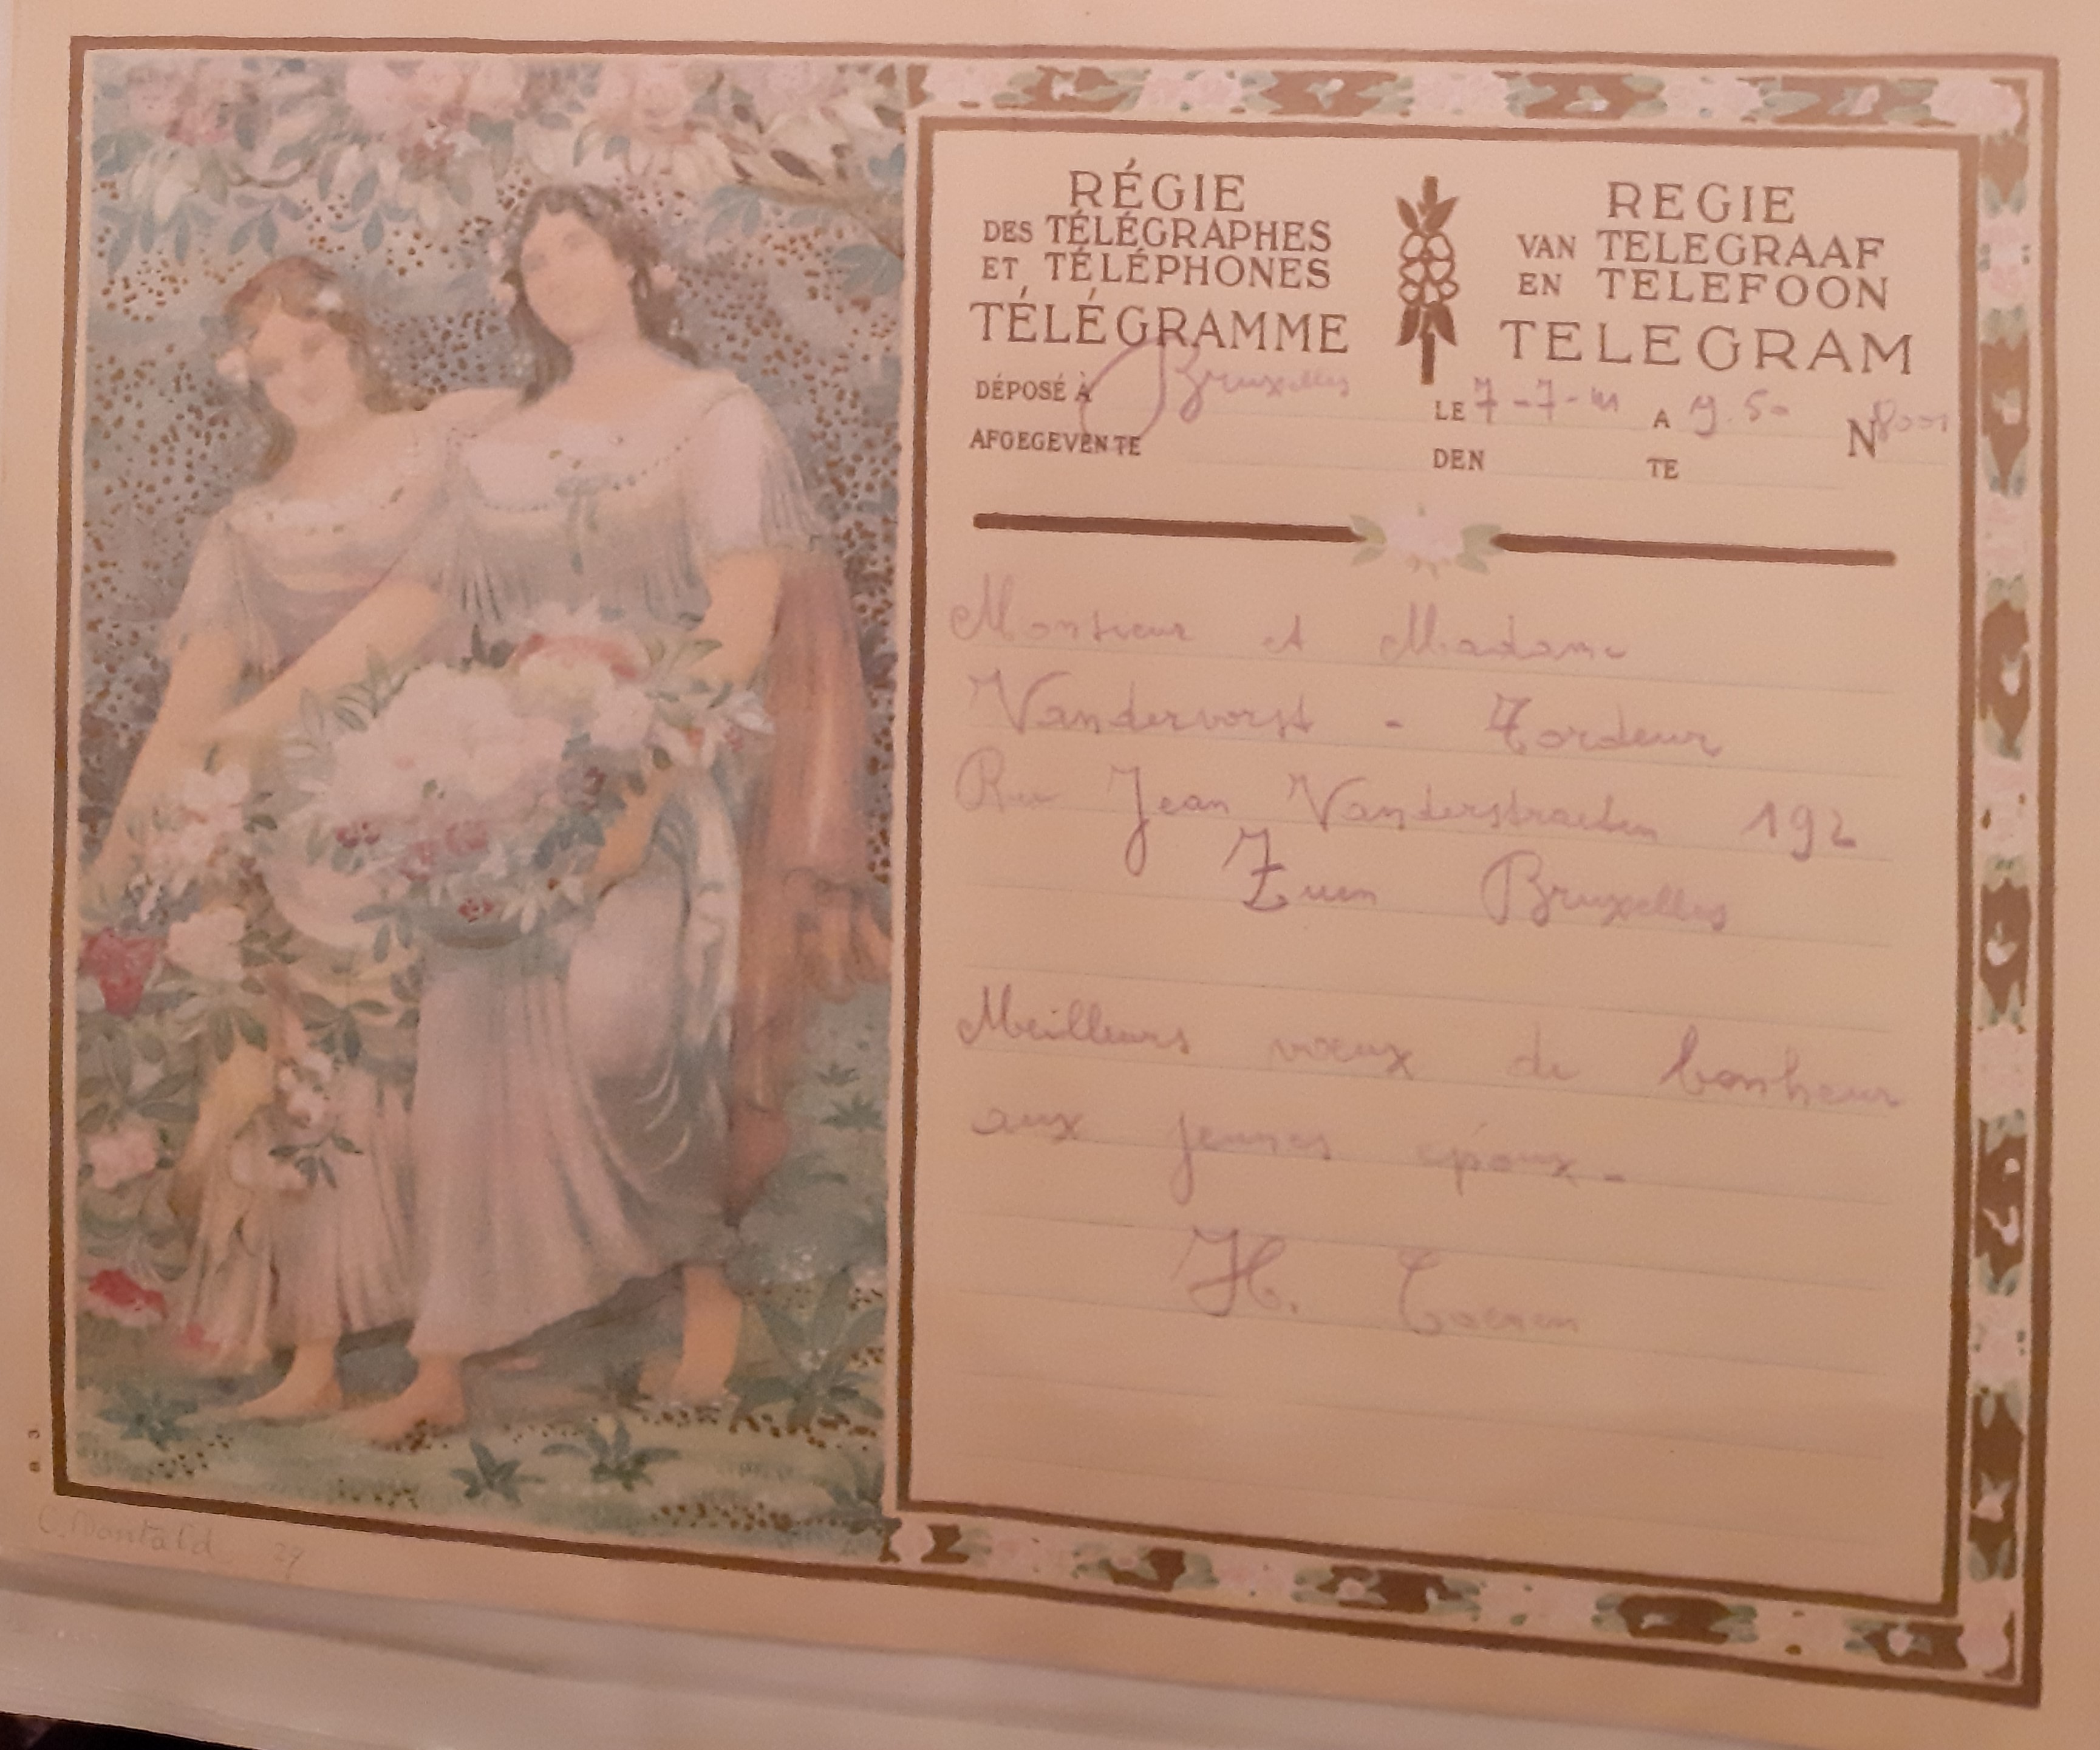 RÉGIE
DES TÉLÉGRAPHES
ET TÉLÉPHONES
TÉLÉGRAMME
REGIE
VAN TELEGRAAF
EN TELEFOON
TELEGRAM
DÉPOSÉ À Bruxelles LE 7-7-41 A 9.50 N
AFGEGEVEN TE DEN TE
Monsieur et Madame
Vandervorst - Tordeur
Rue Jean Vanderstraeten 192
Zuen Bruxelles
Meilleurs vœux de bonheur
aux jeunes époux -
H.
C. Montald 29